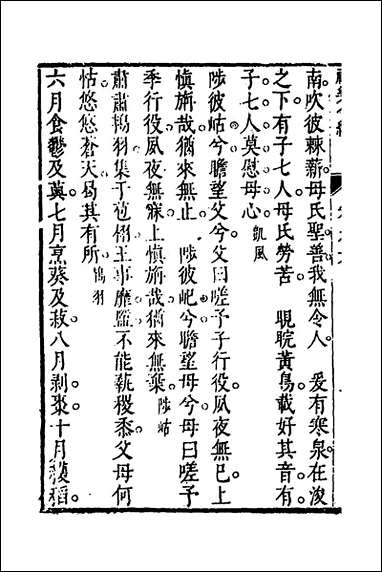 南吹彼棘薪母氏聖善我無令人 爰有寒泉在浚
之下有子七人母氏勞苦 睍睆黃鳥載好其音有
子七人莫慰母心 凱風
陟彼岵兮瞻望父兮父曰嗟予子行役夙夜無已上
慎旃哉猶來無止 陟彼屺兮瞻望母兮母曰嗟予
季行役夙夜無寐上慎旃哉猶來無棄 陟岵
肅肅鴇羽集于苞栩王事靡盬不能蓺稷黍父母何
怙悠悠蒼天曷其有所 鴇羽
六月食鬱及薁七月烹葵及菽八月剥棗十月穫稻